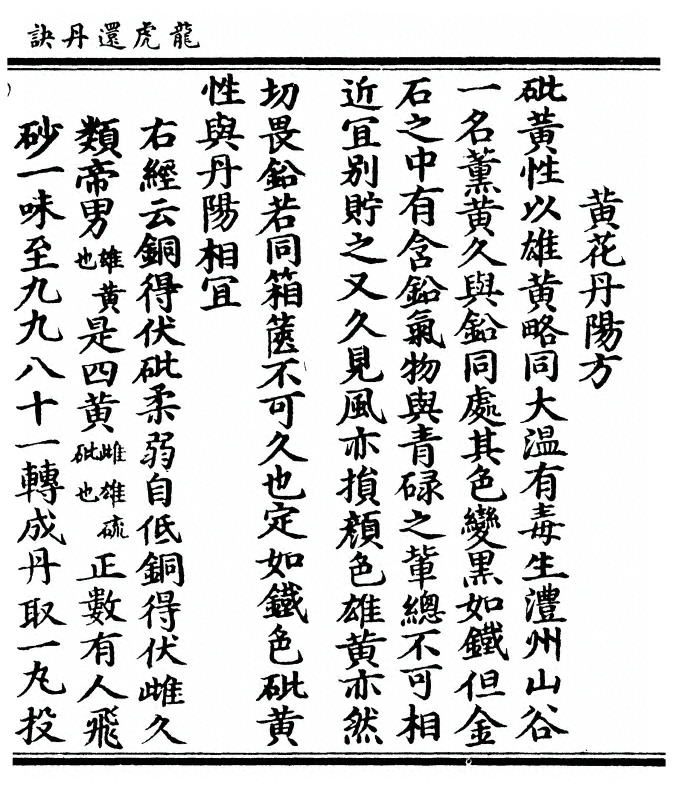 龍虎還丹訣
黃花丹陽方
砒黃性以雄黃略同大溫有毒生澧州山谷
一名薰黃久與鉛同處其色變黑如鐵但金
石之中有含鉛氣物與青碌之軰總不可相
近冝別貯之又久見風亦損顏色雄黃亦然
切畏鉛若同箱篋不可久也定如鐵色砒黃
性與丹陽相冝
右經云銅得伏砒柔弱自低銅得伏雌久
類帝男雄黃也是四黃雌雄硫砒也正數有人飛
砂一味至九九八十一轉成丹取一丸投